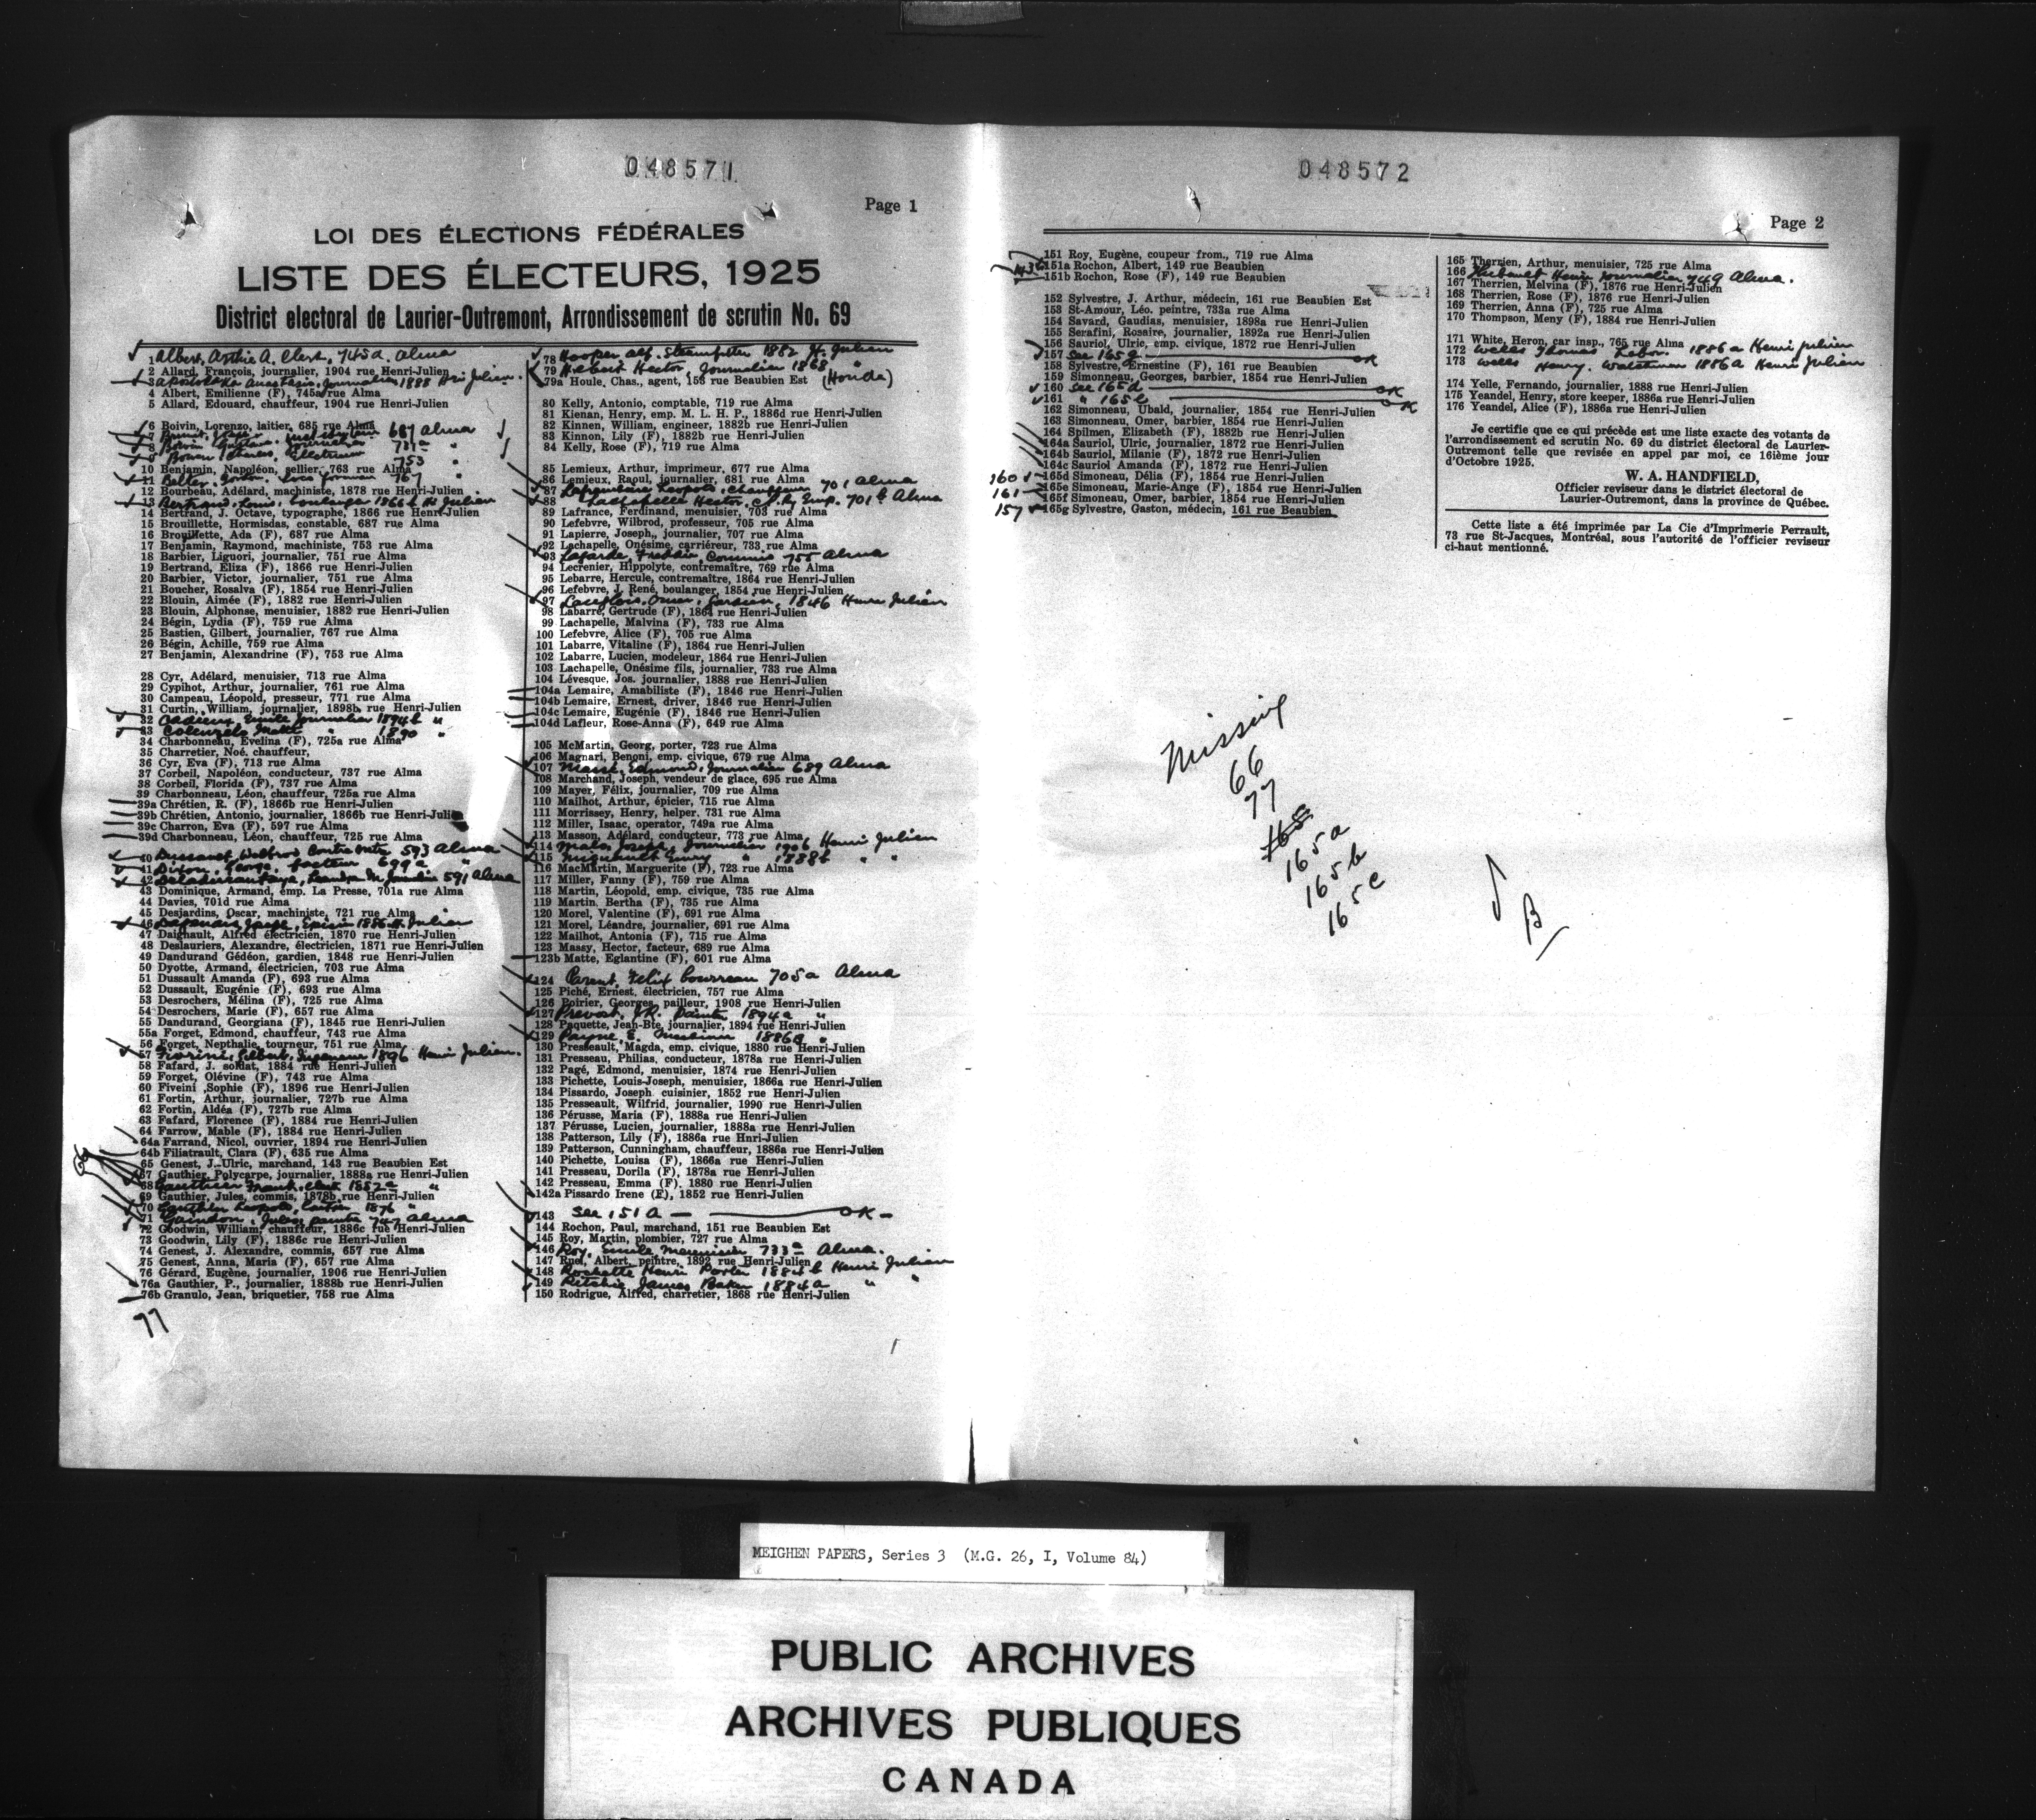 048571
Page 1
LOI DES ÉLECTIONS FÉDÉRALES
LISTE DES ÉLECTEURS, 1925
District electoral de Laurier-Outremont, Arrondissement de scrutin No. 69
1 Albert, Archie A. Clerk, 745a. Alma
2 Allard, François, journalier, 1904 rue Henri-Julien
3 Anastasia, Journalier 1888 Hri Julien.
4 Albert, Emilienne (F), 745a rue Alma
5 Allard, Edouard, chauffeur, 1904 rue Henri-Julien
6 Boivin, Lorenzo, laitier, 685 rue Alma
7 687 Alma
8 Boivin Gustave. Journalier 731a "
9 Bowen Charles, Electrician 753 "
10 Benjamin, Napoléon, sellier, 763 rue Alma
11 Belter, Gordon. Loco foreman 767 "
12 Bourbeau, Adélard, machiniste, 1878 rue Henri-Julien
13 Bertrand, Louis. boulanger 1866 b H Julien
14 Bertrand, J. Octave, typographe, 1866 rue Henri-Julien
15 Brouillette, Hormisdas, constable, 687 rue Alma
16 Brouillette, Ada (F), 687 rue Alma
17 Benjamin, Raymond, machiniste, 753 rue Alma
18 Barbier, Liguori, journalier, 751 rue Alma
19 Bertrand, Eliza (F), 1866 rue Henri-Julien
20 Barbier, Victor, journalier, 751 rue Alma
21 Boucher, Rosalva (F), 1854 rue Henri-Julien
22 Blouin, Aimée (F), 1882 rue Henri-Julien
23 Blouin, Alphonse, menuisier, 1882 rue Henri-Julien
24 Bégin, Lydia (F), 759 rue Alma
25 Bastien, Gilbert, journalier, 767 rue Alma
26 Bégin, Achille, 759 rue Alma
27 Benjamin, Alexandrine (F), 753 rue Alma
28 Cyr, Adélard, menuisier, 713 rue Alma
29 Cypihot, Arthur, journalier, 761 rue Alma
30 Campeau, Léopold, presseur, 771 rue Alma
31 Curtin, William, journalier, 1898b, rue Henri-Julien
32 Cadieux, Emile Journalier 1894b "
33 Colenzelo Matt " 1890 "
34 Charbonneau, Evelina (F), 725a rue Alma
35 Charretier, Noé. chauffeur,
36 Cyr, Eva (F), 713 rue Alma
37 Corbeil, Napoléon, conducteur, 737 rue Alma
38 Corbeil, Florida (F), 737 rue Alma
39 Charbonneau, Léon, chauffeur, 725a rue Alma
39a Chrétien, R. (F), 1866b rue Henri-Julien
39b Chrétien, Antonio, journalier, 1866b rue Henri-Julien
39c Charron, Eva (F), 597 rue Alma
39d Charbonneau, Léon, chauffeur, 725 rue Alma
40 Dussault, Welbrod Contremtre 593 Alma
41 Dixon, George, facteur 699a "
42 591 Alma
43 Dominique, Armand, emp. La Presse, 701a rue Alma
44 Davies, 701d rue Alma
45 Desjardins, Oscar, machiniste, 721 rue Alma
46 Joseph, Epicier 1886 H. Julien
47 Daignault, Alfred électricien, 1870 rue Henri-Julien
48 Deslauriers, Alexandre, électricien, 1871 rue Henri-Julien
49 Dandurand Gédéon, gardien, 1848 rue Henri-Julien
50 Dyotte, Armand, électricien, 703 rue Alma
51 Dussault Amanda (F), 693 rue Alma
52 Dussault, Eugénie (F), 693 rue Alma
53 Desrochers, Mélina (F), 725 rue Alma
54 Desrochers, Marie (F), 657 rue Alma
55 Dandurand, Georgiana (F), 1845 rue Henri-Julien
55a Forget, Edmond, chauffeur, 743 rue Alma
56 Forget, Nepthalie, tourneur, 751 rue Alma
57 Fiorini, Gilbert, Ingenieur 1896 Henri Julien.
58 Fafard, J. soldat, 1884 rue Henri-Julien
59 Forget, Olévine (F), 743 rue Alma
60 Fiveini ,Sophie (F), 1896 rue Henri-Julien
61 Fortin, Arthur, journalier, 727b rue Alma
62 Fortin, Aldéa (F), 727b rue Alma
63 Fafard, Florence (F), 1884 rue Henri-Julien
64 Farrow, Mable (F), 1884 rue Henri-Julien
64a Farrand, Nicol, ouvrier, 1894 rue Henri-Julien
64b Filiatrault, Clara (F), 635 rue Alma
66
65 Genest, J.-Ulric, marchand, 143 rue Beaubien Est
67 Gauthier, Polycarpe, journalier, 1888a rue Henri-Julien
68 Gauthier Frank, clerk 1882a "
69 Gauthier, Jules, commis, 1878b rue Henri-Julien
70 Gauthier Leopold, 1876 "
71 Gaindon, Jules, peintre 747 Alma
72 Goodwin, William, chauffeur, 1886c rue Henri-Julien
73 Goodwin, Lily (F), 1886c rue Henri-Julien
74 Genest, J. Alexandre, commis, 657 rue Alma
75 Genest, Anna, Maria (F), 657 rue Alma
76 Gérard, Eugène, journalier, 1906 rue Henri-Julien
76a Gauthier, P., journalier, 1888b rue Henri-Julien
76b Granulo, Jean, briquetier, 758 rue Alma
77
78 Hooper alf. Steamfitter 1882 H. Julien
79 Hebert Hector, Journalier 1868 "
79a Houle, Chas., agent, 153 rue Beaubien Est (Houda)
80 Kelly, Antonio, comptable, 719 rue Alma
81 Kienan, Henry, emp. M. L. H. P., 1886d rue Henri-Julien
82 Kinnen, William, engineer, 1882b rue Henri-Julien
83 Kinnon, Lily (F), 1882b rue Henri-Julien
84 Kelly, Rose (F), 719 rue Alma
85 Lemieux, Arthur, imprimeur, 677 rue Alma
86 Lemieux, Raoul, journalier, 681 rue Alma
87 Leopold, chauffeur 701 Alma
88 Lachapelle Hector, C.P.Ry Emp. 701b Alma
89 Lafrance, Ferdinand, menuisier, 703 rue Alma
90 Lefebvre, Wilbrod, professeur, 705 rue Alma
91 Lapierre, Joseph,, journalier, 707 rue Alma
92 Lachapelle, Onésime, carriéreur, 733 rue Alma
93 Lagarde, Freddie, Commis 755 Alma
94 Lecrenier, Hippolyte, contremaître, 769 rue Alma
95 Lebarre, Hercule, contremaître, 1864 rue Henri-Julien
96 Lefebvre, J. René, boulanger, 1854 rue Henri-Julien
97 Langlois, Omer, Gardien, 1846 Henri Julien
98 Labarre, Gertrude (F), 1864 rue Henri-Julien
99 Lachapelle, Malvina (F), 733 rue Alma
100 Lefebvre, Alice (F), 705 rue Alma
101 Labarre, Vitaline (F), 1864 rue Henri-Julien
102 Labarre, Lucien, modeleur, 1864 rue Henri-Julien
103 Lachapelle, Onésime fils, journalier, 733 rue Alma
104 Lévesque, Jos. journalier, 1888 rue Henri-Julien
104a Lemaire, Amabiliste (F), 1846 rue Henri-Julien
104b Lemaire, Ernest, driver, 1846 rue Henri-Julien
104c Lemaire, Eugénie (F), 1846 rue Henri-Julien
104d Lafleur, Rose-Anna (F), 649 rue Alma
105 McMartin, Georg, porter, 723 rue Alma
106 Magnari, Benoni, emp. civique, 679 rue Alma
107 Massé, Edmond, Journalier 689 Alma
108 Marchand, Joseph, vendeur de glace, 695 rue Alma
109 Mayer, Félix, journalier, 709 rue Alma
110 Mailhot, Arthur, épicier, 715 rue Alma
111 Morrissey, Henry, helper. 731 rue Alma
112 Miller, Isaac, operator, 749a rue Alma
113 Masson, Adélard, conducteur, 773 rue Alma
114 Malo, Joseph, Journalier 1906 Henri Julien
115 Migneault Emery " 1888b " "
116 MacMartin, Marguerite (F), 723 rue Alma
117 Miller, Fanny (F), 759 rue Alma
118 Martin, Léopold, emp. civique, 735 rue Alma
119 Martin. Bertha (F), 735 rue Alma
120 Morel, Valentine (F), 691 rue Alma
121 Morel, Léandre, journalier, 691 rue Alma
122 Mailhot, Antonia (F), 715 rue Alma
123 Massy, Hector, facteur, 689 rue Alma
123b Matte, Eglantine (F), 601 rue Alma
124 Felix bourreau 705a Alma
125 Piché, Ernest. électricien, 757 rue Alma
126 Poirier, Georges, pailleur, 1908 rue Henri-Julien
127 Prevost, J.R. Painter 1894a "
128 Paquette, Jean-Bte, journalier, 1894 rue Henri-Julien
129 Payne, E. Machiner 1886B "
130 Presseault, Magda, emp. civique, 1880 rue Henri-Julien
131 Presseau, Philias, conducteur, 1878a rue Henri-Julien
132 Pagé, Edmond, menuisier, 1874 rue Henri-Julien
133 Pichette, Louis-Joseph, menuisier, 1866a rue Henri-Julien
134 Pissardo, Joseph. cuisinier, 1852 rue Henri-Julien
135 Presseault, Wilfrid, journalier, 1990 rue Henri-Julien
136 Pérusse, Maria (F), 1888a rue Henri-Julien
137 Pérusse, Lucien, journalier, 1888a rue Henri-Julien
138 Patterson, Lily (F), 1886a rue Hnri-Julien
139 Patterson, Cunningham, chauffeur, 1886a rue Henri-Julien
140 Pichette, Louisa (F), 1866a rue Henri-Julien
141 Presseau, Dorila (F), 1878a rue Henri-Julien
142 Presseau, Emma (F). 1880 rue Henri-Julien
142a Pissardo Irene (F), 1852 rue Henri-Julien
143 see 151A — OK —
144 Rochon, Paul, marchand, 151 rue Beaubien Est
145 Roy, Martin, plombier, 727 rue Alma
146 Roy, Emile Menuisier 733a Alma.
147 Ruel, Albert, peintre, 1892 rue Henri-Julien
148 Rochette Henri Porter 1884b Henri Julien
149 Ritchie James Baker 1884a " "
150 Rodrigue, Alfred, charretier, 1868 rue Henri-Julien
048572
Page 2
151 Roy, Eugène, coupeur from., 719 rue Alma
143 151a Rochon, Albert, 149 rue Beaubien
151b Rochon, Rose (F), 149 rue Beaubien
152 Sylvestre, J. Arthur, médecin, 161 rue Beaubien Est
153 St-Amour, Léo. peintre, 733a rue Alma
154 Savard, Gaudias, menuisier, 1898a rue Henri-Julien
155 Serafini, Rosaire, journalier, 1892a rue Henri-Julien
156 Sauriol, Ulric, emp. civique, 1872 rue Henri-Julien
157 see 165g OK
158 Sylvestre, Ernestine (F), 161 rue Beaubien
159 Simonneau, Georges, barbier, 1854 rue Henri-Julien
160 see 165d OK
161 " 165e OK
162 Simonneau, Ubald, journalier, 1854 rue Henri-Julien
163 Simoneau, Omer, barbier, 1854 rue Henri-Julien
164 Spilmen, Elizabeth (F), 1882b rue Henri-Julien
164a Sauriol, Ulric, journalier, 1872 rue Henri-Julien
164b Sauriol, Milanie (F), 1872 rue Henri-Julien
164c Sauriol Amanda (F), 1872 rue Henri-Julien
160 165d Simoneau, Délia (F), 1854 rue Henri-Julien
161 165e Simoneau, Marie-Ange (F), 1854 rue Henri-Julien
165f Simoneau, Omer, barbier, 1854 rue Henri-Julien
157 165g Sylvestre, Gaston, médecin, 161 rue Beaubien
165 Therrien, Arthur, menuisier, 725 rue Alma
166 Thibault Henri Journalier 749 Alma.
167 Therrien, Melvina (F), 1876 rue Henri-Julien
168 Therrien, Rose (F), 1876 rue Henri-Julien
169 Therrien, Anna (F), 725 rue Alma
170 Thompson, Meny (F), 1884 rue Henri-Julien
171 White, Heron, car insp., 765 rue Alma
172 Wells Thomas Labor. 1886a Henri julien
173 Wells Henry. Watchman 1886a Henri Julien
174 Yelle, Fernando, journalier, 1888 rue Henri-Julien
175 Yeandel, Henry, store keeper, 1886a rue Henri-Julien
176 Yeandel, Alice (F), 1886a rue Henri-Julien
Je certifie que ce qui précède est une liste exacte des votants de
l'arrondissement ed scrutin No. 69 du district électoral de Laurier-
Outremont telle que revisée en appel par moi, ce 16ième jour
d'Octobre 1925.
W. A. HANDFIELD,
Officier reviseur dans le district électoral de
Laurier-Outremont, dans la province de Québec.
Cette liste a été imprimée par La Cie d'Imprimerie Perrault,
73 rue St-Jacques, Montréal, sous l'autorité de l'officier reviseur
ci-haut mentionné.
Missing
66
77
165
165a
165b
165c
B
MEIGHEN PAPERS, Series 3 (M.G. 26, I, Volume 84)
PUBLIC ARCHIVES
ARCHIVES PUBLIQUES
CANADA